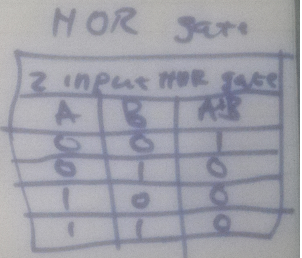 NOR gate
2 input NOR gate
A B A+B
0 0 1
0 1 0
1 0 0
1 1 0